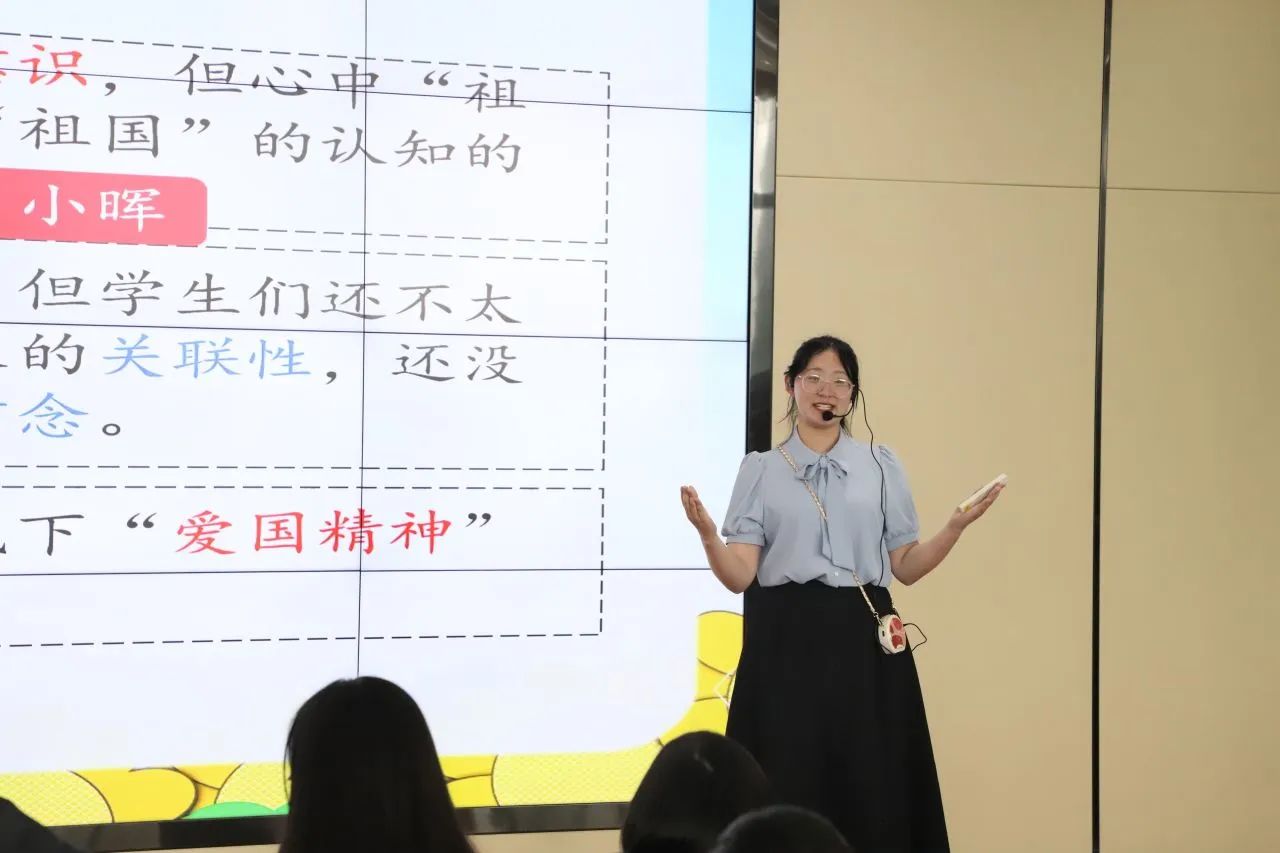 识，但心中“祖
“祖国”的认知的
小晖
但学生们还不太
的关联性，还没
念。
下“爱国精神”